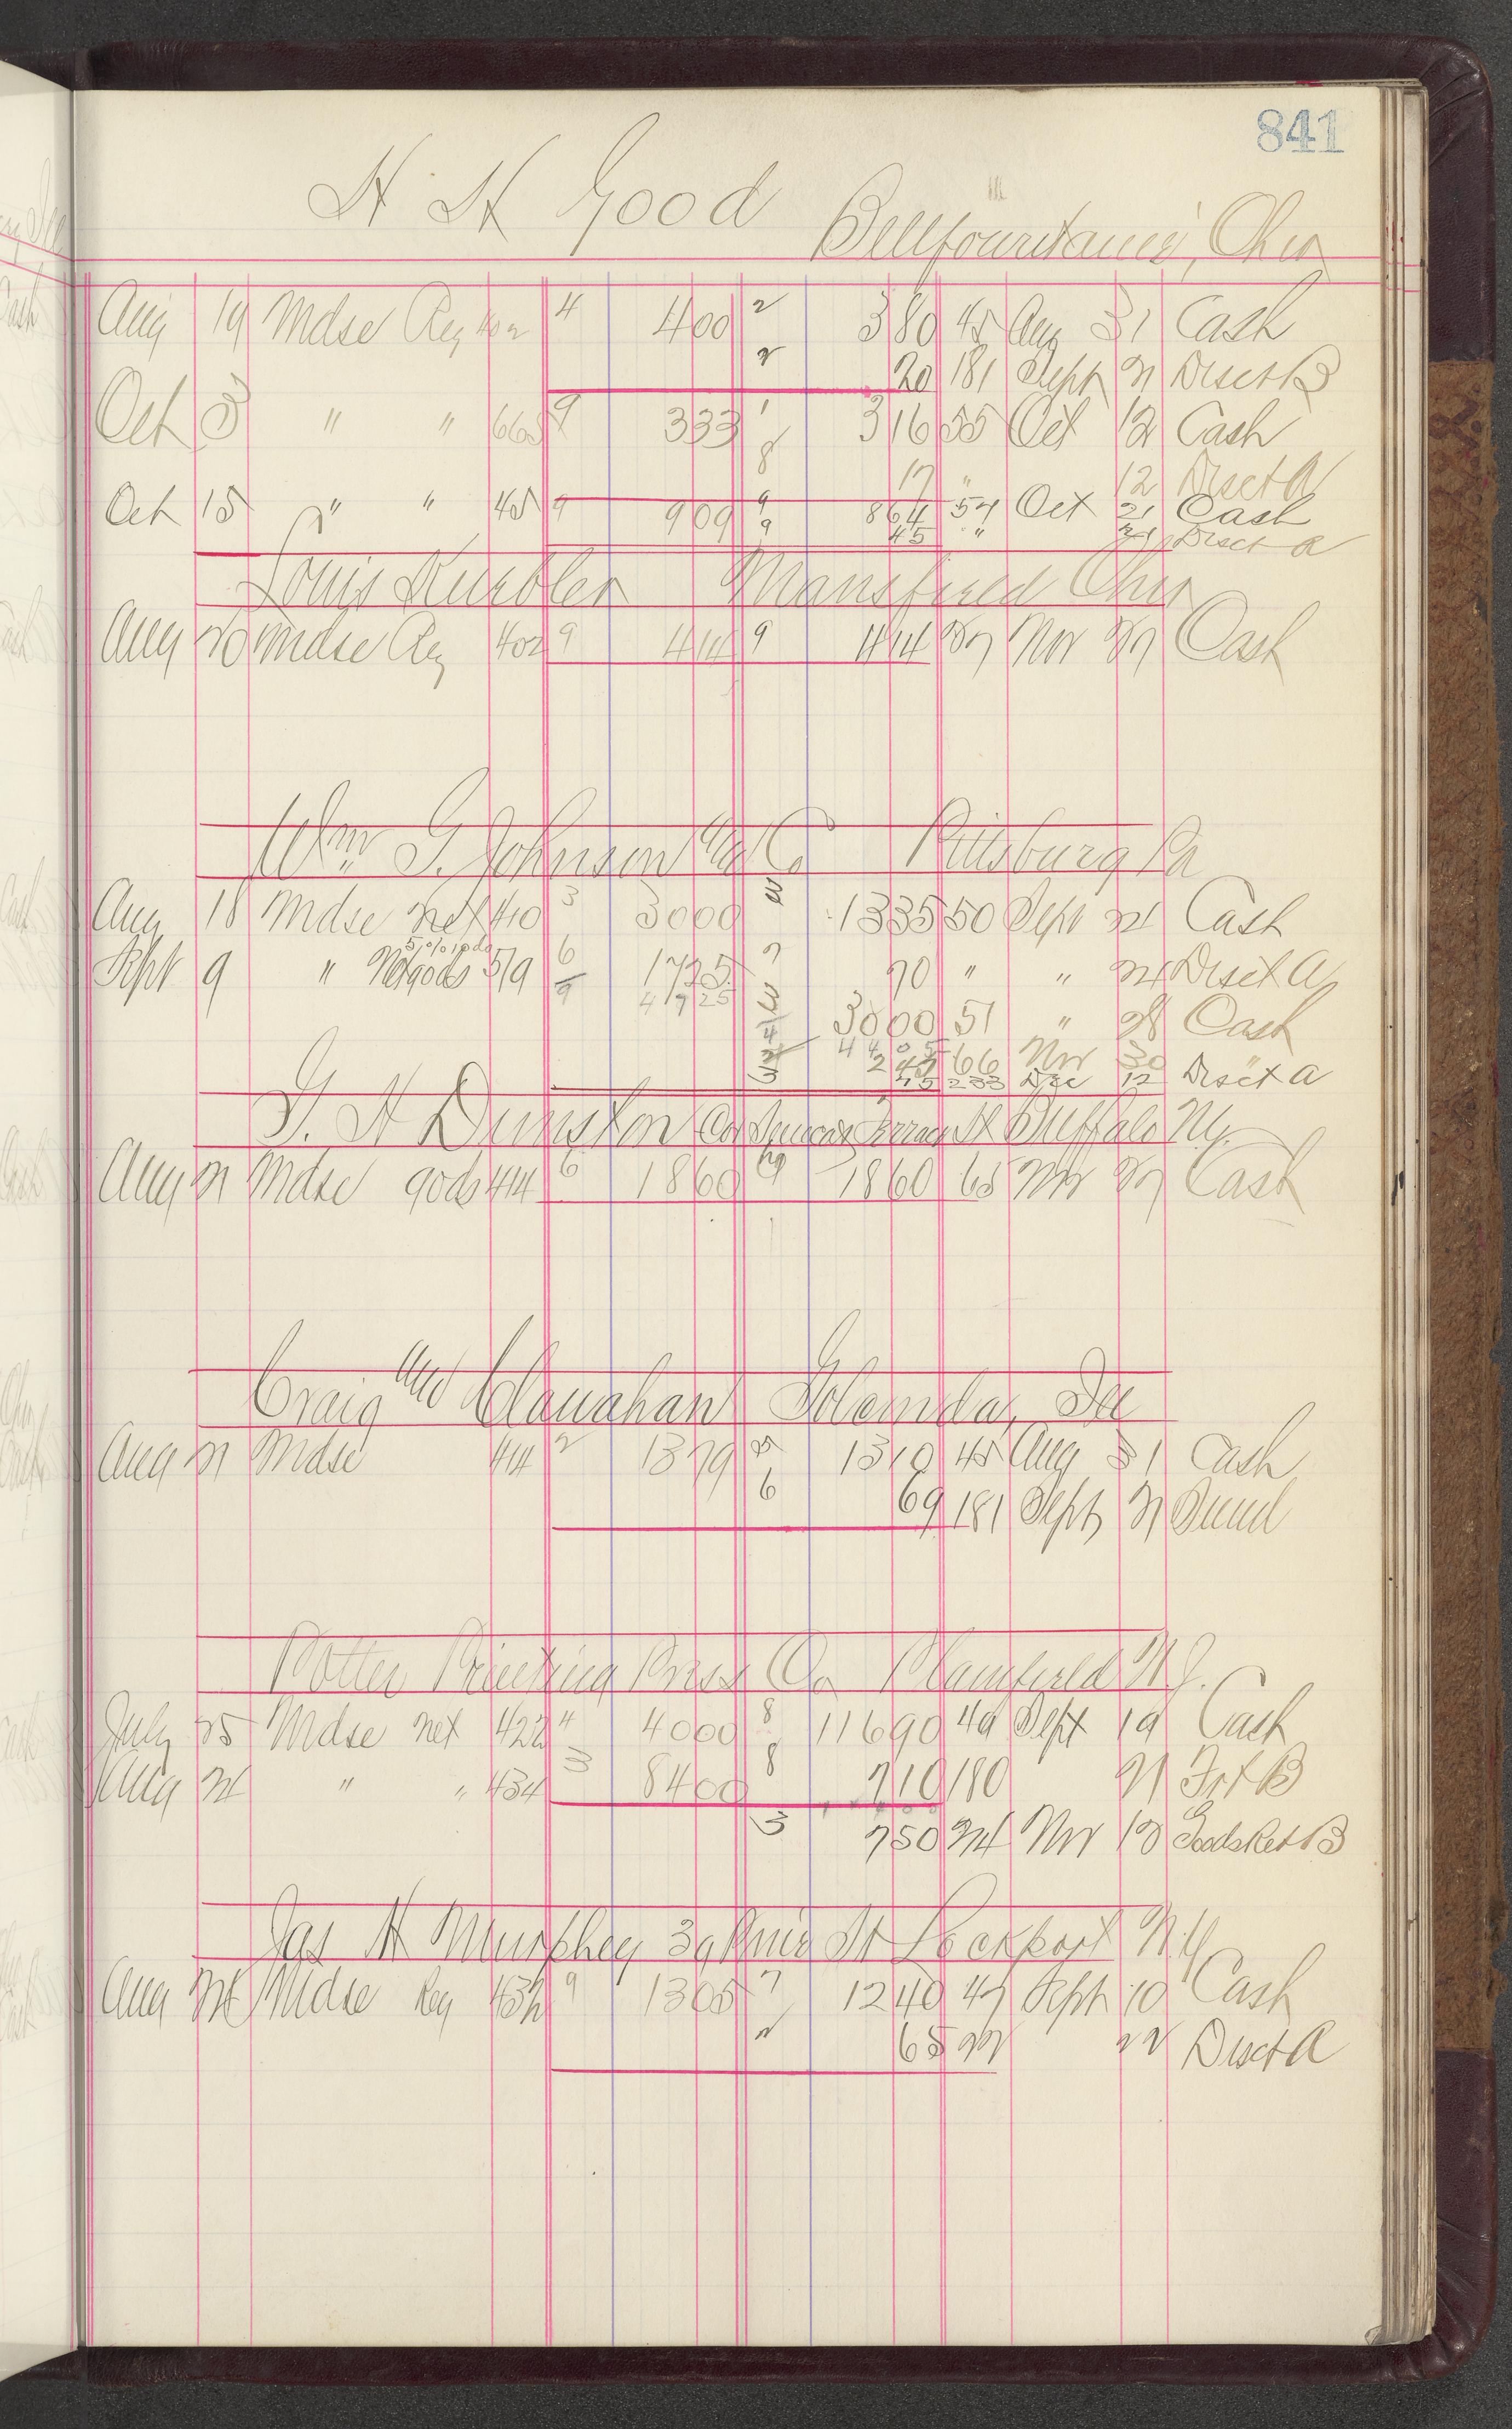 841
H H Good Bellfountaine, Ohio
Aug 19 Mdse Reg 402 4 400 2 380 45 Aug 31 Cash
2 20 181 Sept 21 Disct B
Oct 3 " " 665 9 333 1 316 55 Oct 12 Cash
8 17 " 12 Disct A
Oct 15 " " 45 9 909 9 864 57 Oct 21 Cash
9 45 " 21 Disct A
Louis Mansfield Ohio
Aug 20 Mdse Reg 402 9 414 9 414 87 Nov 27 Cash
Wm G. Johnson and Co Pittsburg Pa
Aug 18 Mdse net 410 3 3000 1335 50 Sept 21 Cash
5% 10 ds
Sept 9 " Net 90ds 519 6 1725 7 70 " " 21 Disct A
9 4725 3 3000 51 " 28 Cash
66 Nov 30 "
45 233 Dec 12 Disct A
G. H Dunston Cor Seneca Terrace St Buffalo N.y.
Aug 21 Mdse 90ds 414 6 1860 9 1860 65 Nov 27 Cash
Craig and Clanahan Golconda, Ill
Aug 21 Mdse 414 2 1379 5 1310 45 Aug 31 Cash
6 69 181 Sept 21
Potter Printing Press Co Plainfield N J.
July 25 Mdse net 422 4 4000 8 11690 49 Sept 19 Cash
Aug 24 " " 434 3 8400 8 710 180 21 Frt B
3 750 Nov 18 Goods Ret B
Jas H Murphey 39 Pine St Lockport N.Y
Aug 24 Mdse Reg 432 9 1305 7 1240 47 Sept 10 Cash
2 65 22 Disct A